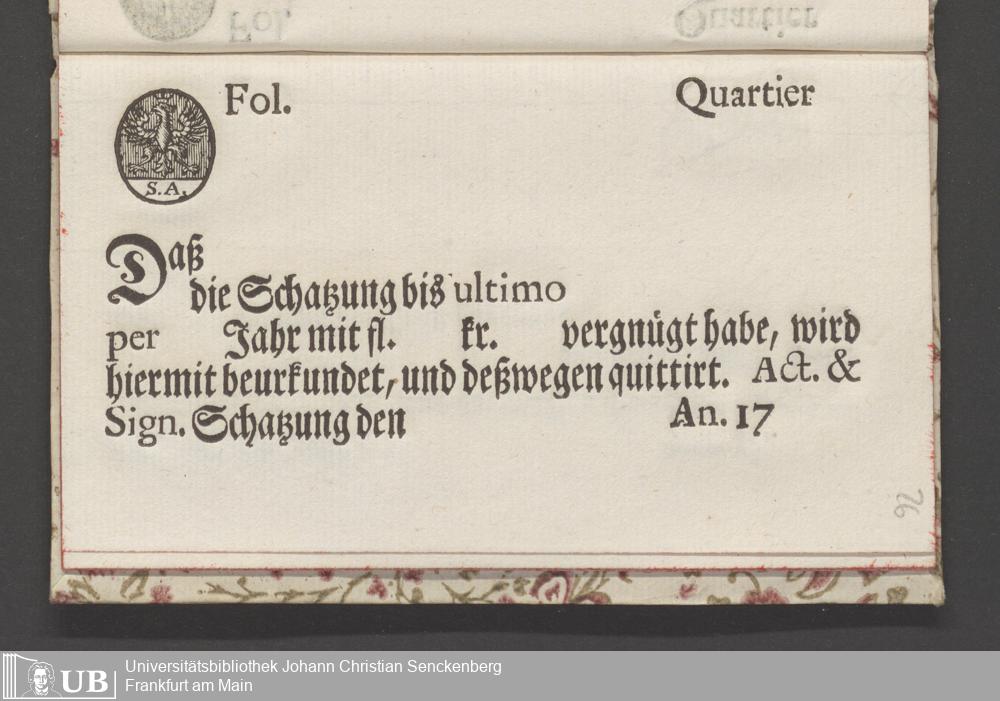 Fol. Quartier
S.A.
Daß
die Schatzung bis ultimo
per Jahr mit fl. kr. vergnügt habe, wird
hiermit beurkundet, und deßwegen quittirt. Act. &
Sign. Schatzung den An. 17
92
UB
Universitätsbibliothek Johann Christian Senckenberg
Frankfurt am Main